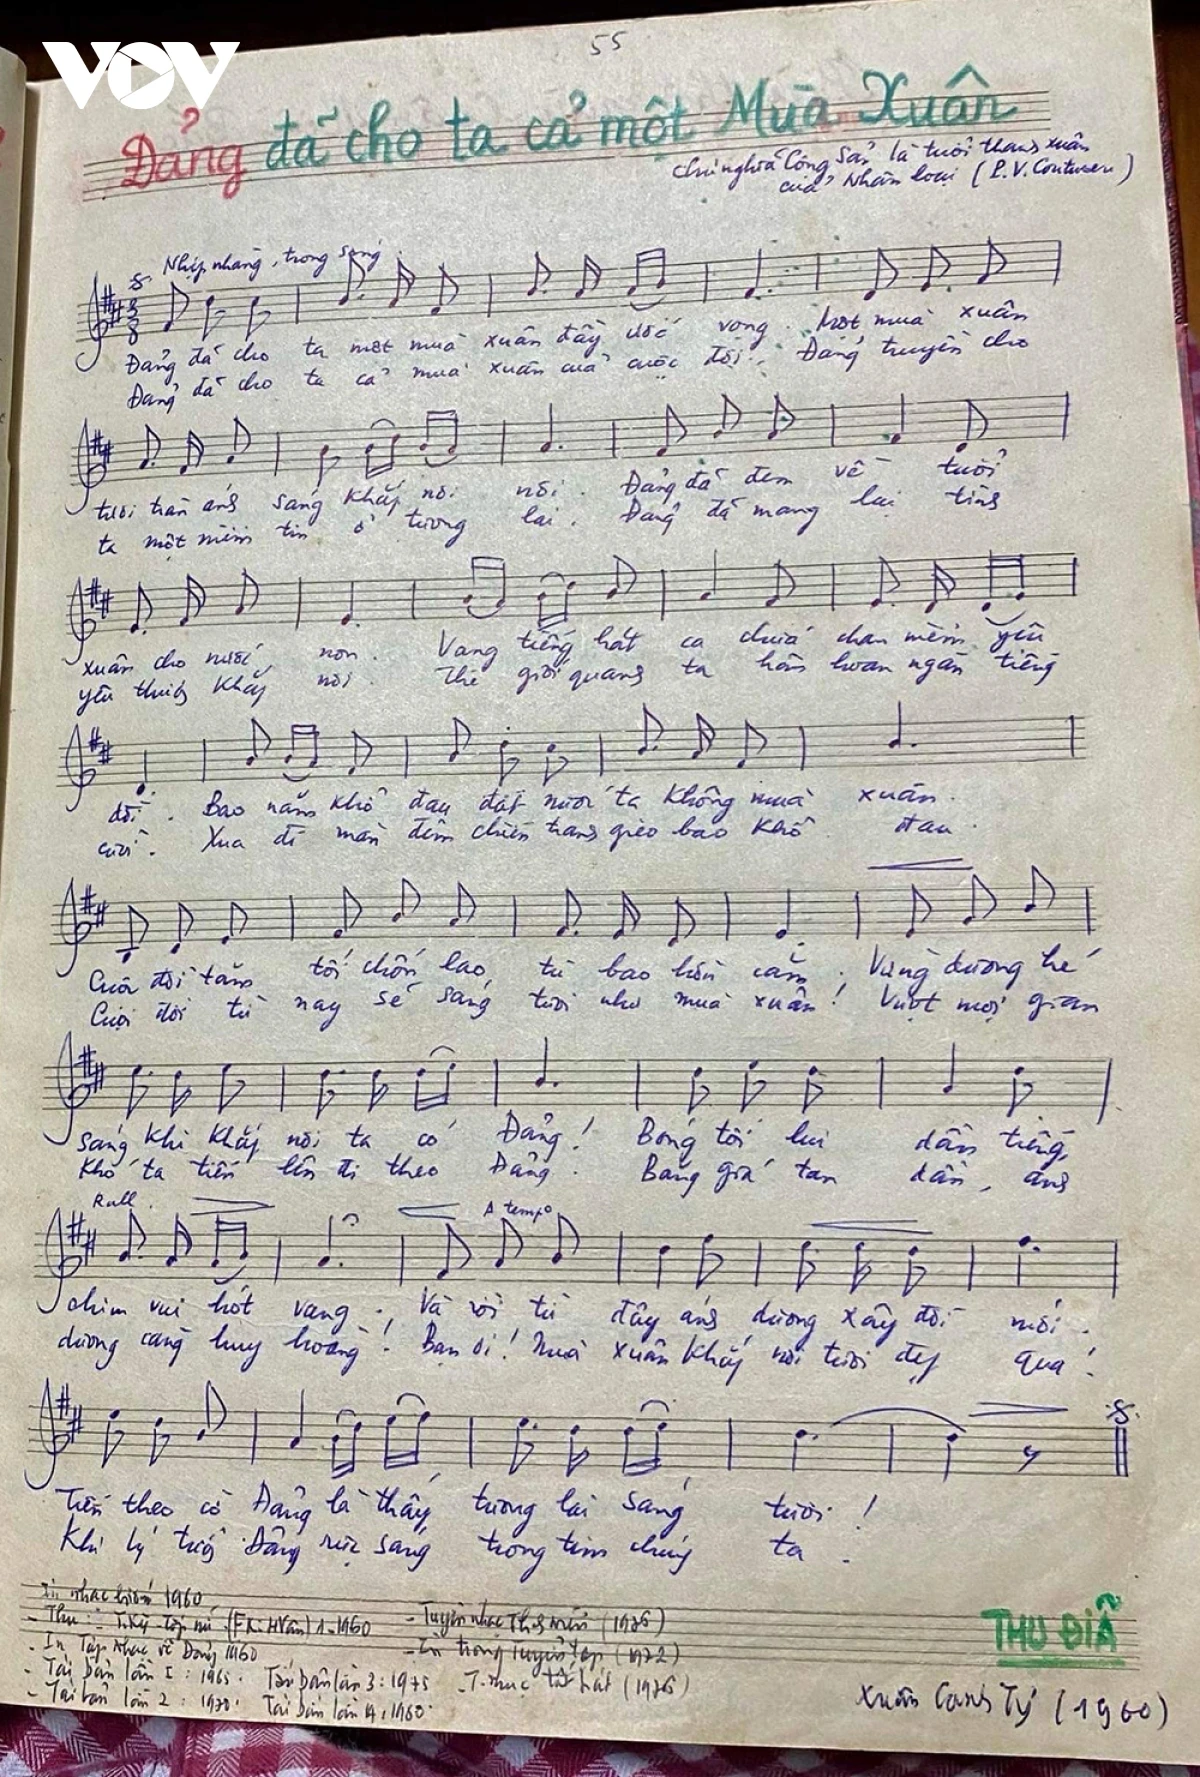 VOV
55
Đảng đã cho ta cả một Mùa Xuân
Chủ nghĩa Cộng Sản là tuổi thanh xuân
của Nhân loại (P.V. Couturier)
Nhịp nhàng, trong sáng
Đảng đã cho ta một mùa xuân đầy ước vọng. Một mùa xuân
Đảng đã cho ta cả mùa xuân của cuộc đời. Đảng truyền cho
tươi tràn ánh sáng khắp nơi nơi. Đảng đã đem về tuổi
ta một niềm tin ở tương lai. Đảng đã mang lại tình
xuân cho nước non. Vang tiếng hát ca chứa chan niềm yêu
yêu thương khắp nơi. Thế giới quanh ta hân hoan ngàn tiếng
đời. Bao năm khổ đau đất nước ta không mùa xuân.
cười. Xua đi màn đêm chiến tranh gieo bao khổ đau.
Cuộc đời tăm tối chốn lao tù bao hờn căm. Vừng dương hé
Cuộc đời từ nay sẽ sáng tươi như mùa xuân! Vượt mọi gian
sáng khi khắp nơi ta có Đảng! Bóng tối lui dần tiếng
khó ta tiến lên đi theo Đảng. Băng giá tan dần, ánh
Rall.
A tempo
chim vui hót vang. Và rồi từ đây ánh dương xây đời mới.
dương càng huy hoàng! Bạn ơi! Mùa xuân khắp nơi tươi đẹp quá!
Tiến theo cờ Đảng là thấy tương lai sáng tươi!
Khi lý tưởng Đảng rực sáng trong tim chúng ta.
In nhạc 1960
- Thu: (H Vân) 1-1960 - Tuyển nhạc (1976)
- In Tập Nhạc về Đảng 1960 - In trong Tuyển tập (1972)
- Tái bản lần I: 1965. Tái bản lần 3: 1975 - T. nhạc hát (1976)
- Tái bản lần 2: 1970. Tái bản lần 4: 1960.
THU ĐĨA
Xuân Canh Tý (1960)